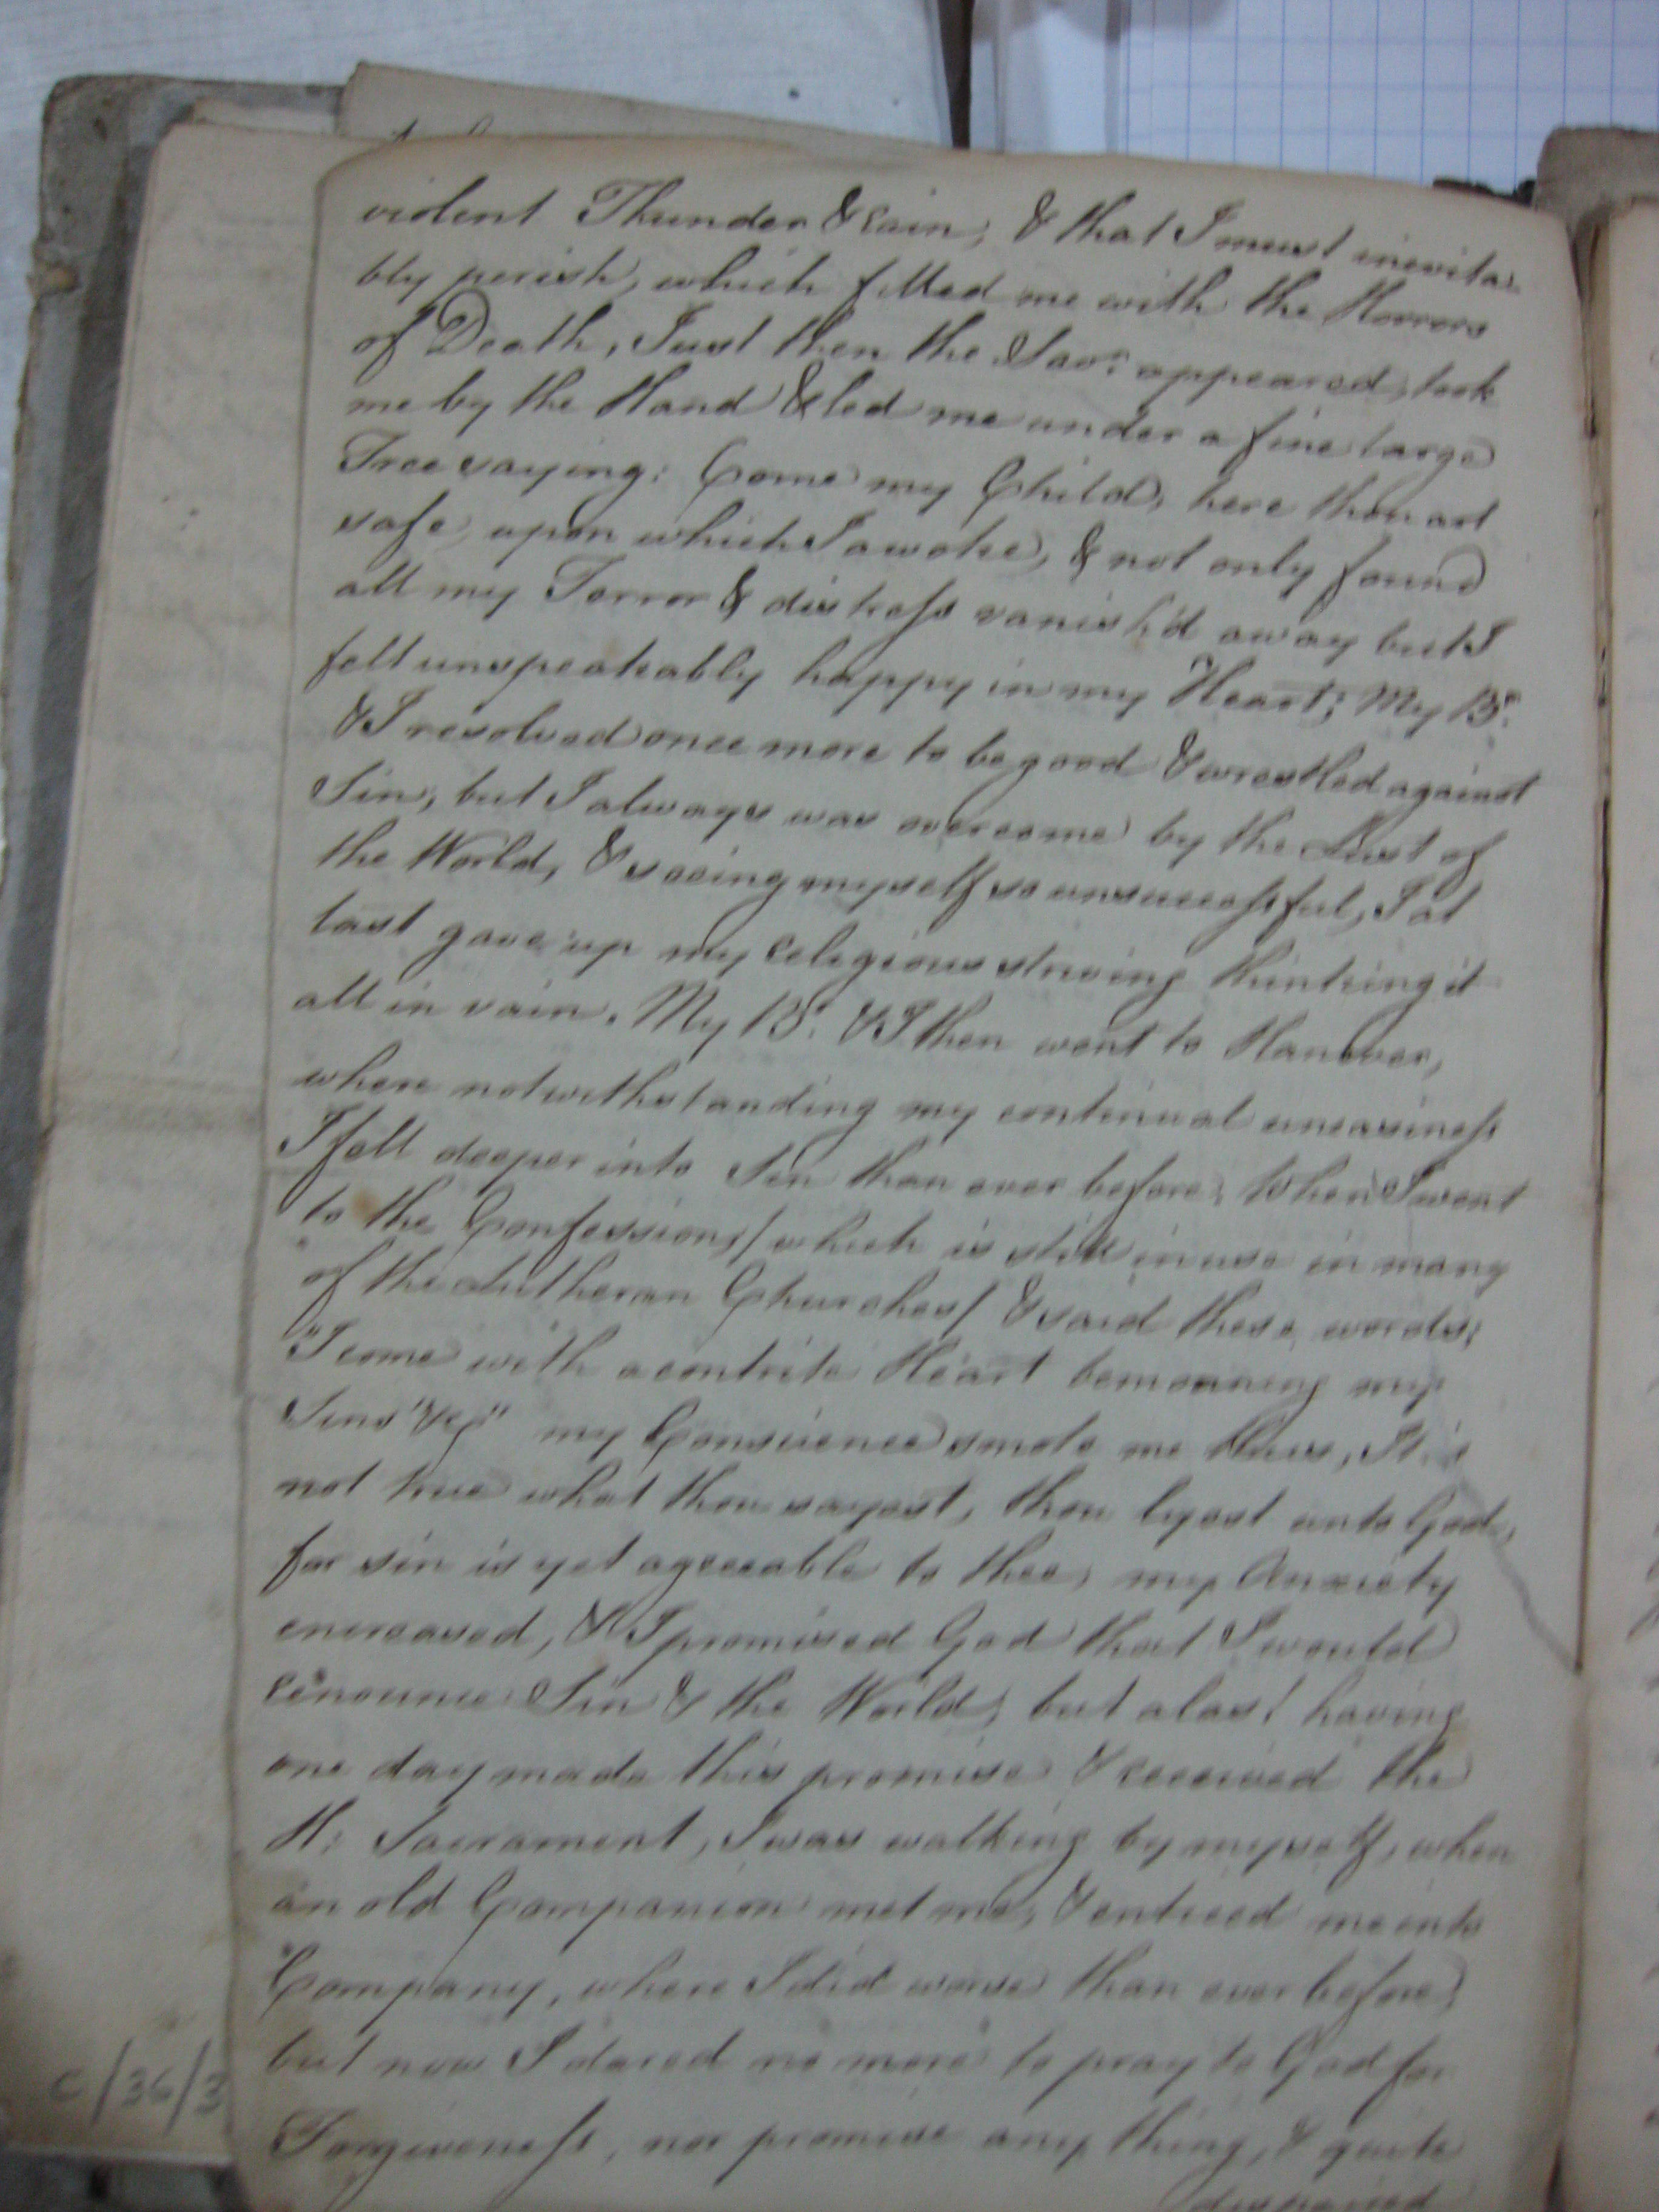 violent Thunder & rain, & that I must inevita=
bly perish, which filled me with the Horrors
of Death, Just then the Savr. appeared, took
me by the Hand & led me under a fine large
Tree saying: Come my Child, here thou art
safe, upon which I awoke, & not only found
all my Terror & distress vanish'd away but I
felt unspeakably happy in my Heart; My Br.
& I resolved once more to be good & wrestled against
Sin, but I always was overcome by the Lust of
the World, & seeing myself so unsuccessful, I at
last gave up my religious striving thinking it
all in vain. My Br. & I then went to Hanover,
where notwithstanding my continual uneasiness
I fell deeper into Sin than ever before; When I went
to the Confession/ which is still in use in many
of the Lutheran Churches/ & said these words;
"I come with a contrite Heart bemoaning my
Sins" &c" my Conscience smote me thus, It is
not true what thou sayest, thou lyest unto God,
for sin is yet agreeable to thee, my Anxiety
encreased, & I promised God that I would
renounce Sin & the World; but alas! having
one day made this promise & received the
H: Sacrament, I was walking by myself, when
an old Companion met me, & enticed me into
Company, where I did worse than ever before,
but now I dared no more to pray to God for
Forgiveness, nor promise any thing, & quite
despaired
C/36/3